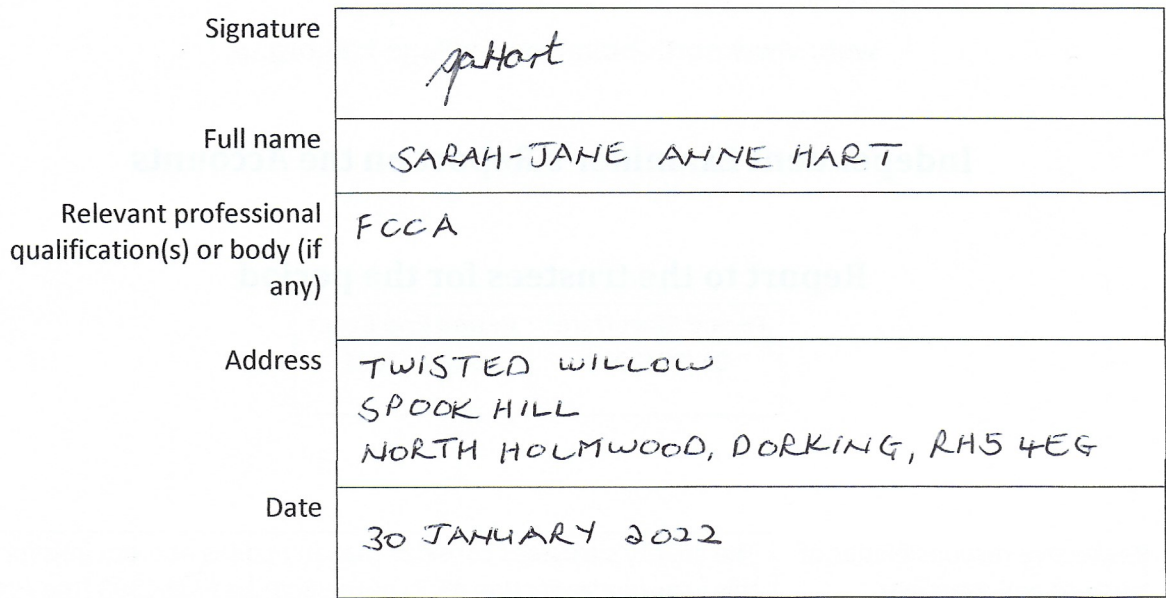 Signature
SJAHart
Full name
SARAH-JANE ANNE HART
Relevant professional
qualification(s) or body (if
any)
FCCA
Address
TWISTED WILLOW
SPOOK HILL
NORTH HOLMWOOD, DORKING, RH5 4EG
Date
30 JANUARY 2022